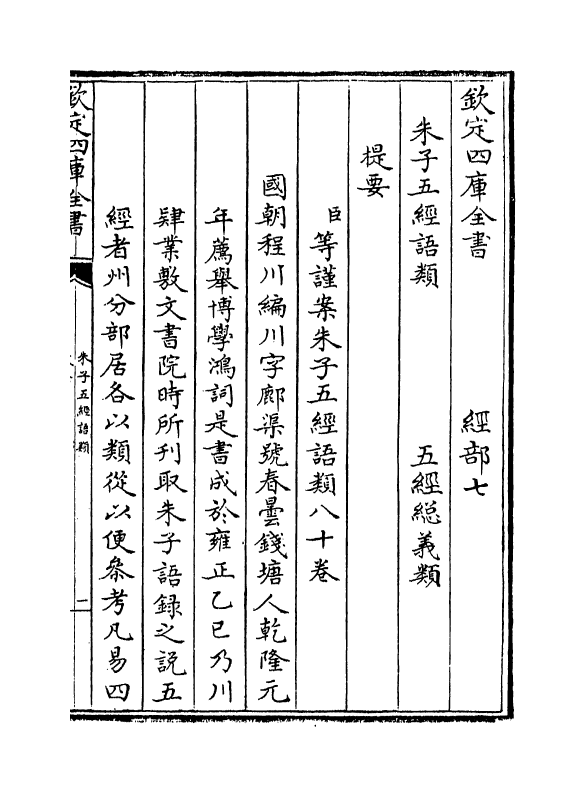 欽定四庫全書　經部七
朱子五經語類　五經總義類
提要
臣等謹案朱子五經語類八十卷
國朝程川編川字郮渠號春曇錢塘人乾隆元
年薦舉博學鴻詞是書成於雍正乙巳乃川
肄業敷文書院時所刋取朱子語録之説五
經者州分部居各以類從以便叅考凡易四
欽定四庫全書
朱子五經語類